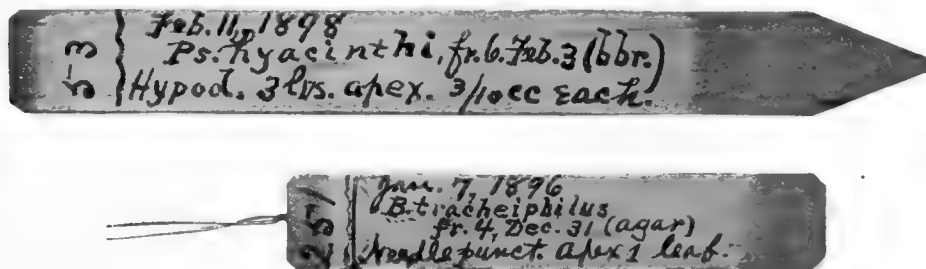 53
Feb. 11, 1898
Ps. hyacinthi, fr. 6. Feb. 3 (bbr.)
Hypod. 3 lvs. apex. 3/10 cc each.
Jan. 7, 1896
B. tracheiphilus
fr. 4, Dec. 31 (agar)
Needle punct. apex 1 leaf.